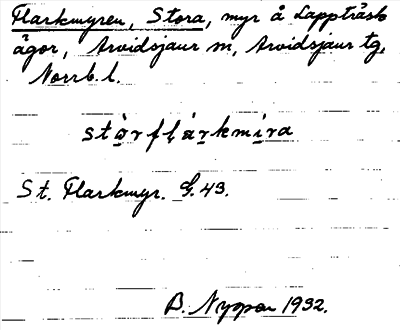 Flarkmyren, Stora, myr å Lappträsk
ägor, Arvidsjaur sn, Arvidsjaur tg,
Norrb. l.
stọrflạṛkmịra
St. Flarkmyr. G. 43.
B. Nyman 1932.